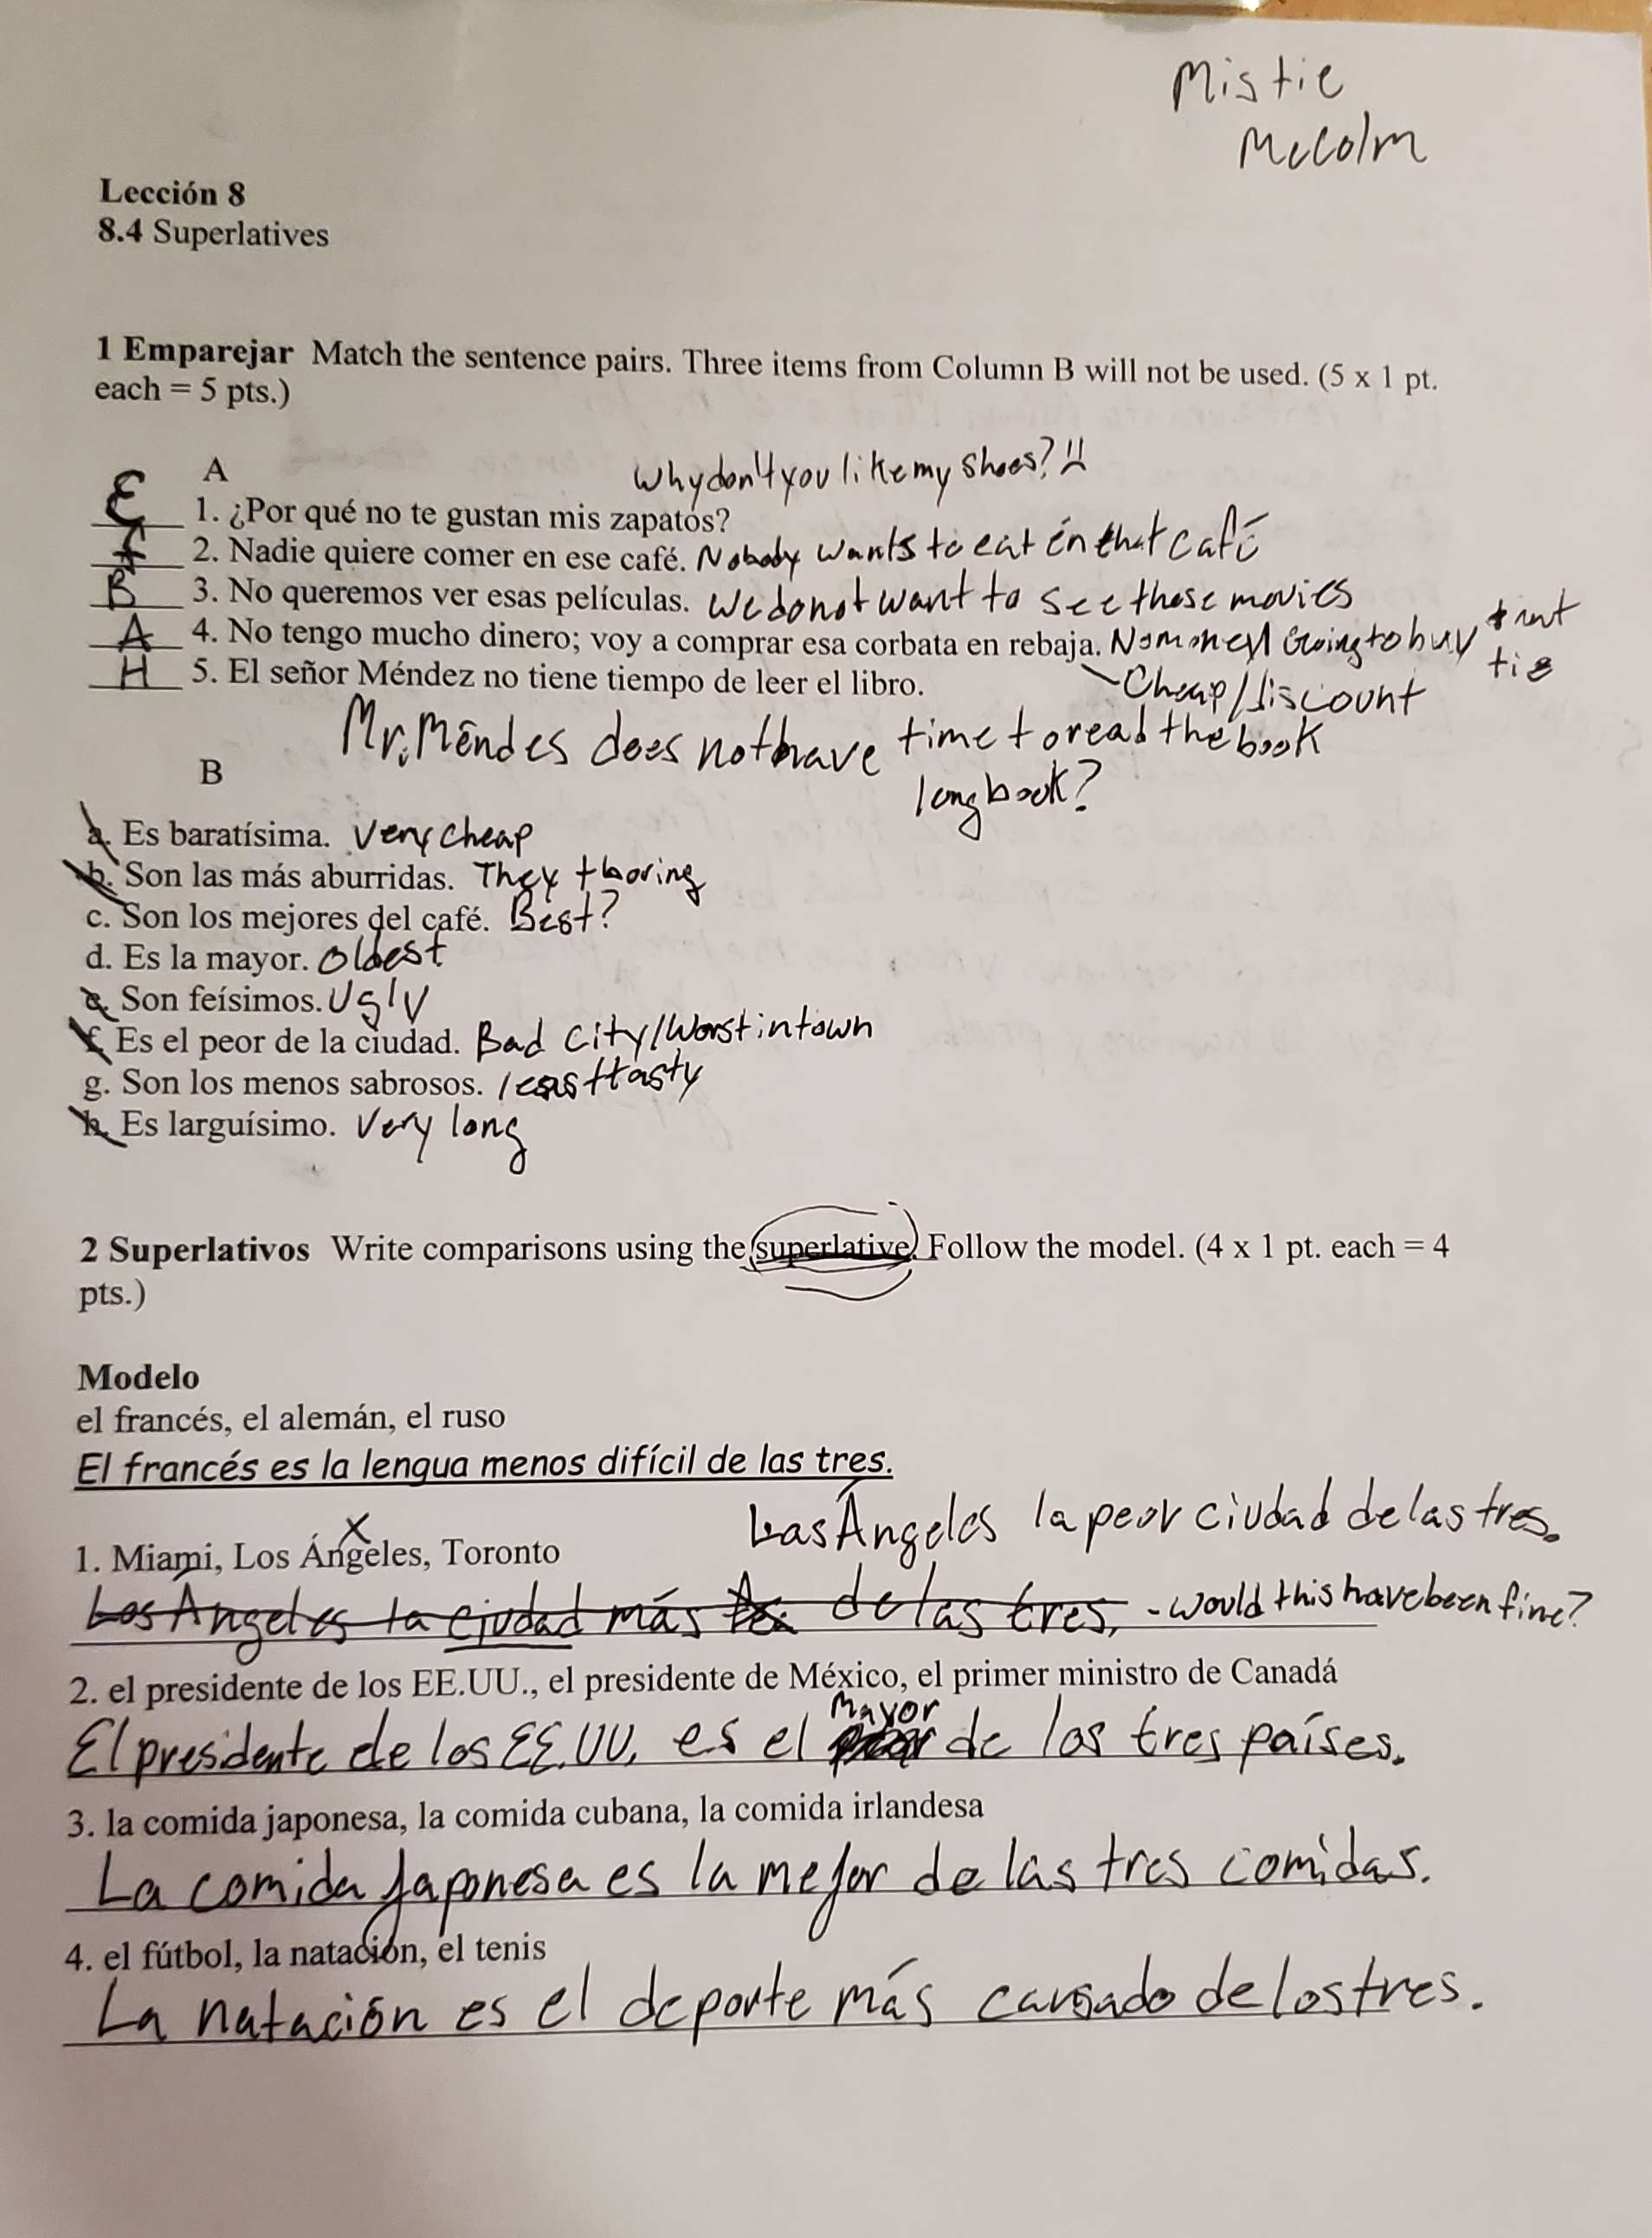 Mistie
McColm
Lección 8
8.4 Superlatives
1 Emparejar Match the sentence pairs. Three items from Column B will not be used. (5 x 1 pt.
each = 5 pts.)
A
Why don't you like my shoes?
E 1. ¿Por qué no te gustan mis zapatos?
f 2. Nadie quiere comer en ese café. Nobody wants to eat én that café
B 3. No queremos ver esas películas. We do not want to see those movies
A 4. No tengo mucho dinero; voy a comprar esa corbata en rebaja. No money Going to buy
tie
H 5. El señor Méndez no tiene tiempo de leer el libro.
- Cheap/discount
Mr. Méndes does not have time to read the book
long book?
B
a. Es baratísima. Very cheap
b. Son las más aburridas. They + boring
c. Son los mejores del café. Best?
d. Es la mayor. Oldest
e. Son feísimos. Ugly
f. Es el peor de la ciudad. Bad City/Worst in town
g. Son los menos sabrosos. least tasty
h. Es larguísimo. Very long
2 Superlativos Write comparisons using the superlative. Follow the model. (4 x 1 pt. each = 4
pts.)
Modelo
el francés, el alemán, el ruso
El francés es la lengua menos difícil de las tres.
Las Ángeles la peor ciudad de las tres.
x
1. Miami, Los Ángeles, Toronto
Los Ángeles la ciudad más de las tres, - would this have been fine?
2. el presidente de los EE.UU., el presidente de México, el primer ministro de Canadá
Mayor
El presidente de los EE.UU. es el de los tres países.
3. la comida japonesa, la comida cubana, la comida irlandesa
La comida japonesa es la mejor de las tres comidas.
4. el fútbol, la natación, el tenis
La natación es el deporte más cansado de los tres.